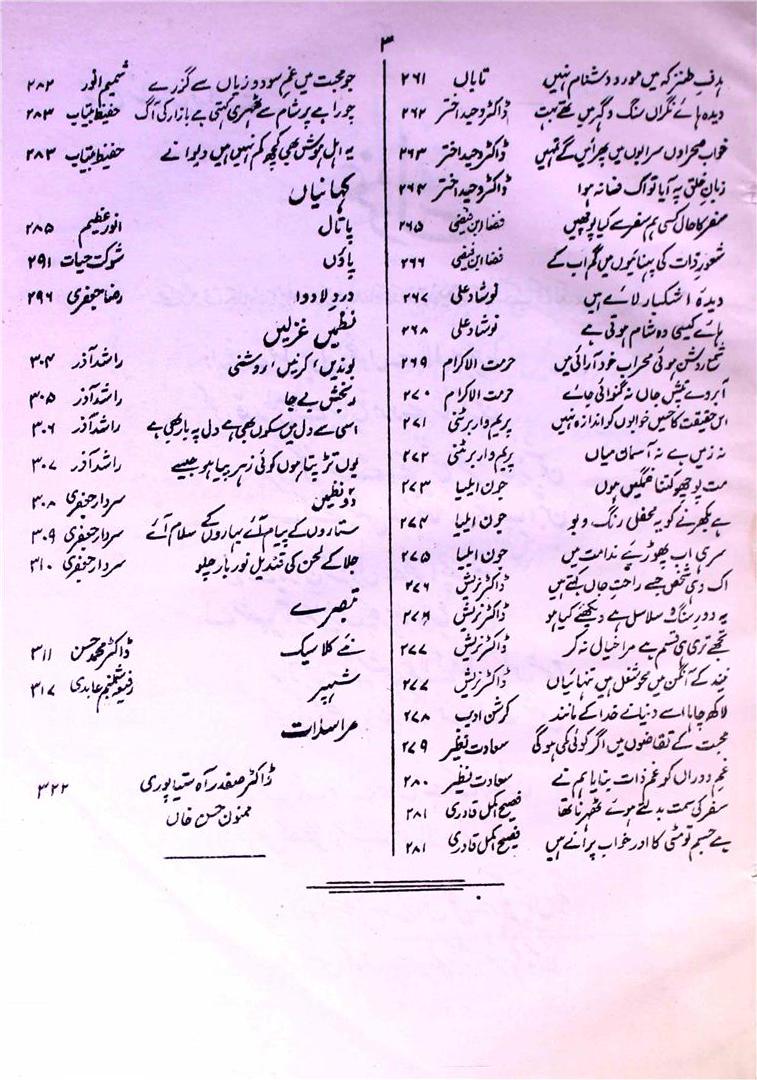 ۳
ہدفِ طنز کہ میں موردِ دشنام نہیں تاباں ۲۶۱
دیدہ ہائے نگراں سنگ و گہر میں تھے بہت ڈاکٹر وحید اختر ۲۶۲
خواب صحراؤں سرابوں میں پھرائیں گے تمہیں ڈاکٹر وحید اختر ۲۶۳
زبانِ خلق پہ آیا تو اک فسانہ ہوا ڈاکٹر وحید اختر ۲۶۴
سفر کا حال کسی ہم سفر سے کیا پوچھیں فضا ابن فیضی ۲۶۵
شعورِ ذات کی پہنائیوں میں گم اب کے فضا ابن فیضی ۲۶۶
دیدۂ اشکبار لائے ہیں نوشاد علی ۲۶۷
ہائے کیسی وہ شام ہوتی ہے نوشاد علی ۲۶۸
شمع روشن ہوئی محراب خود آرائی میں حرمت الاکرام ۲۶۹
آبروے تپشِ جاں نہ گنوائی جائے حرمت الاکرام ۲۷۰
اس حقیقت کا حسیں خوابوں کو اندازہ نہیں پریم واربرٹنی ۲۷۱
نہ زمیں ہے نہ آسمان میاں پریم واربرٹنی ۲۷۲
مت پوچھو کتنا غمگیں ہوں جون ایلیا ۲۷۳
ہے بکھرنے کو یہ محفلِ رنگ و بو جون ایلیا ۲۷۴
سر ہی اب پھوڑیے ندامت میں جون ایلیا ۲۷۵
اک وہی شخص جسے راحتِ جاں کہتے ہیں ڈاکٹر نریش ۲۷۶
یہ دورِ سنگ و سلاسل ہے دیکھئے کیا ہو ڈاکٹر نریش ۲۷۶
مجھے تری ہی قسم ہے مرا خیال نہ کر ڈاکٹر نریش ۲۷۷
نیند کے آنگن میں محوِ شغل ہیں تنہائیاں ڈاکٹر نریش ۲۷۷
لاکھ چاہا اسے دنیا نے خدا کے مانند کرشن ادیب ۲۷۸
محبت کے تقاضوں میں اگر کوئی کمی ہوگی سعادت نظیر ۲۷۹
غمِ دوراں کو غمِ ذات بنایا ہم نے سعادت نظیر ۲۸۰
سفر کی سمت بدلتے ہوئے ٹھہرنا تھا فصیح اکمل قادری ۲۸۱
یے جسم تو مٹی کا اور خواب پرانے ہیں فصیح اکمل قادری ۲۸۱
جو محبت میں غمِ سود و زیاں سے گزرے شمیم انور ۲۸۲
چوراہے پر شام سے ٹھہری کہتی ہے بازار کی آگ حفیظ بیتاب ۲۸۳
یہ اہلِ ہوش بھی کچھ کم نہیں ہیں دیوانے حفیظ بیتاب ۲۸۳
کہانیاں
پاتال انور عظیم ۲۸۵
پاؤں شوکت حیات ۲۹۱
دردِ لادوا رضا جعفری ۲۹۶
نظمیں غزلیں
بوندیں، کرنیں، روشنی راشد آذر ۳۰۴
رنجش بے جا راشد آذر ۳۰۵
اسی سے دل میں سکوں بھی ہے دل پہ بار بھی ہے راشد آذر ۳۰۶
یوں تڑپتا ہوں کوئی زہر پیا ہو جیسے راشد آذر ۳۰۷
دو نظمیں سردار جعفری ۳۰۸
ستاروں کے پیام آئے بہاروں کے سلام آئے سردار جعفری ۳۰۹
جلا کے لحن کی قندیل نور بار چلو سردار جعفری ۳۱۰
تبصرے
نئے کلاسیک ڈاکٹر محمد حسن ۳۱۱
شہپر رفیعہ شبنم عابدی ۳۱۷
مراسلات
ڈاکٹر صفدر آہ سیتاپوری
ممنون حسن خاں ۳۲۲